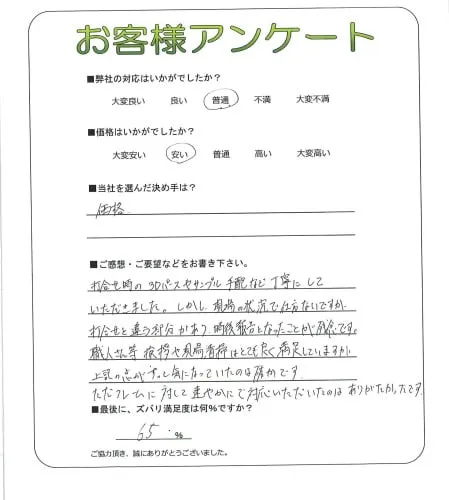 お客様アンケート
■弊社の対応はいかがでしたか？
大変良い 良い 普通 不満 大変不満
■価格はいかがでしたか？
大変安い 安い 普通 高い 大変高い
■当社を選んだ決め手は？
価格
■ご感想・ご要望などをお書き下さい。
打合せ時の3Dパースやサンプル手配など丁寧にして
いただきました。しかし、現場の状況で仕方ないですが、
打合せと違う部分があり、時後報告となったことが残念です。
職人さん等挨拶や現場清掃はとても良く満足していますが、
上記の点がずっと気になっていたのは確かです。
ただクレームに対して速やかにご対応いただいたのはありがたかったです。
■最後に、ズバリ満足度は何%ですか？
65.%
ご協力頂き、誠にありがとうございました。